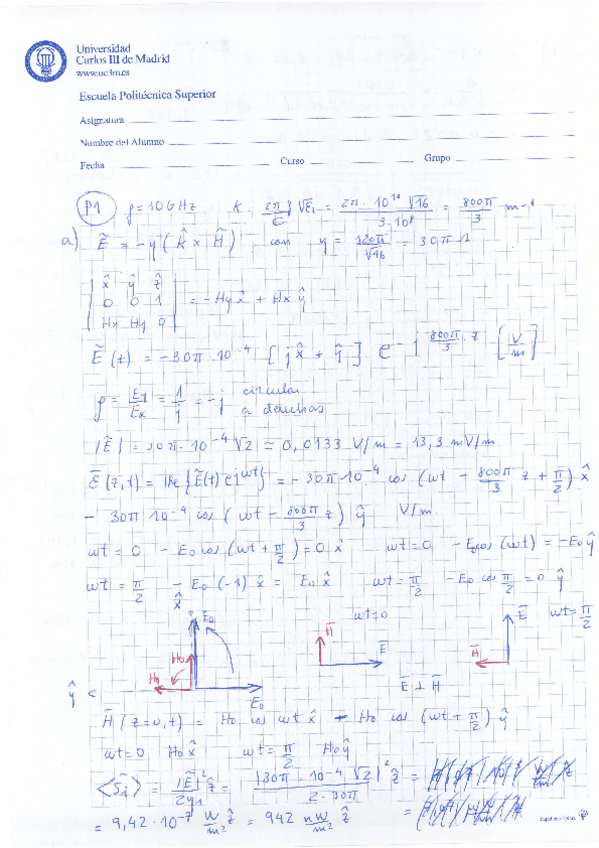 Universidad
Carlos III de Madrid
www.uc3m.es
Escuela Politécnica Superior
Asignatura
Nombre del Alumno
Fecha Curso Grupo
P1 f=10GHz K = 2π/C f √ε1 = 2π · 10^10 √16 / 3·10^8 = 800π/3 m-1
a) Ẽ = -η ( k̂ × H̃ ) con η = 120π/√16 = 30π Ω
| x̂ ŷ ẑ |
| 0 0 1 | = -Hy x̂ + Hx ŷ
| Hx Hy 0 |
Ẽ (t) = -30π · 10^-4 [ j x̂ + ŷ ] e^-j 800π/3 z [V/m]
ρ = Ey/Ex = 1/j = -j circular
a derechas
|Ẽ| = 30π · 10^-4 √2 ≃ 0,0133 V/m = 13,3 mV/m
Ē (z,t) = Re {Ẽ(t) e^jωt} = -30π·10^-4 cos (ωt - 800π/3 z + π/2) x̂
- 30π 10^-4 cos ( ωt - 800π/3 z ) ŷ V/m
ωt = 0 - E0 cos (ωt + π/2) = 0 x̂ ωt = 0 - E0 cos (ωt) = -E0 ŷ
ωt = π/2 - E0 (-1) x̂ = E0 x̂ ωt = π/2 - E0 cos π/2 = 0 ŷ
x̂ E0 ωt=0 H̄ Ē Ē ωt = π/2
H0 H0 H̄
ŷ < E0 Ē ⊥ H̄
H̄ (z=0, t) = H0 cos ωt x̂ - H0 cos (ωt + π/2) ŷ
ωt=0 H0 x̂ ωt = π/2 H0 ŷ
<S̃i> = |Ẽ|²/2η1 ẑ = |30π · 10^-4 √2|² / 2·30π ẑ =
= 9,42 · 10^-7 W/m² ẑ = 942 nW/m² ẑ =